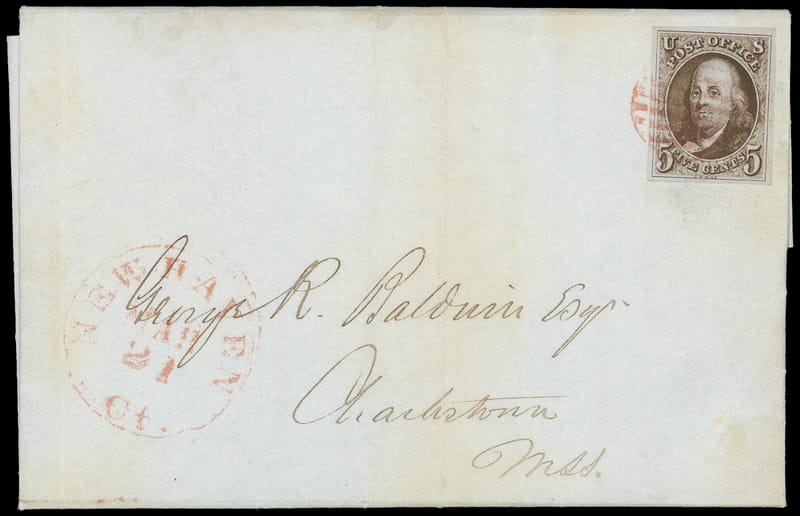 U S
POST OFFICE
5 FIVE CENTS 5
NEW HAVEN
MAR
21
Ct.
George R. Baldwin Esqr
Charlestown
Mss.